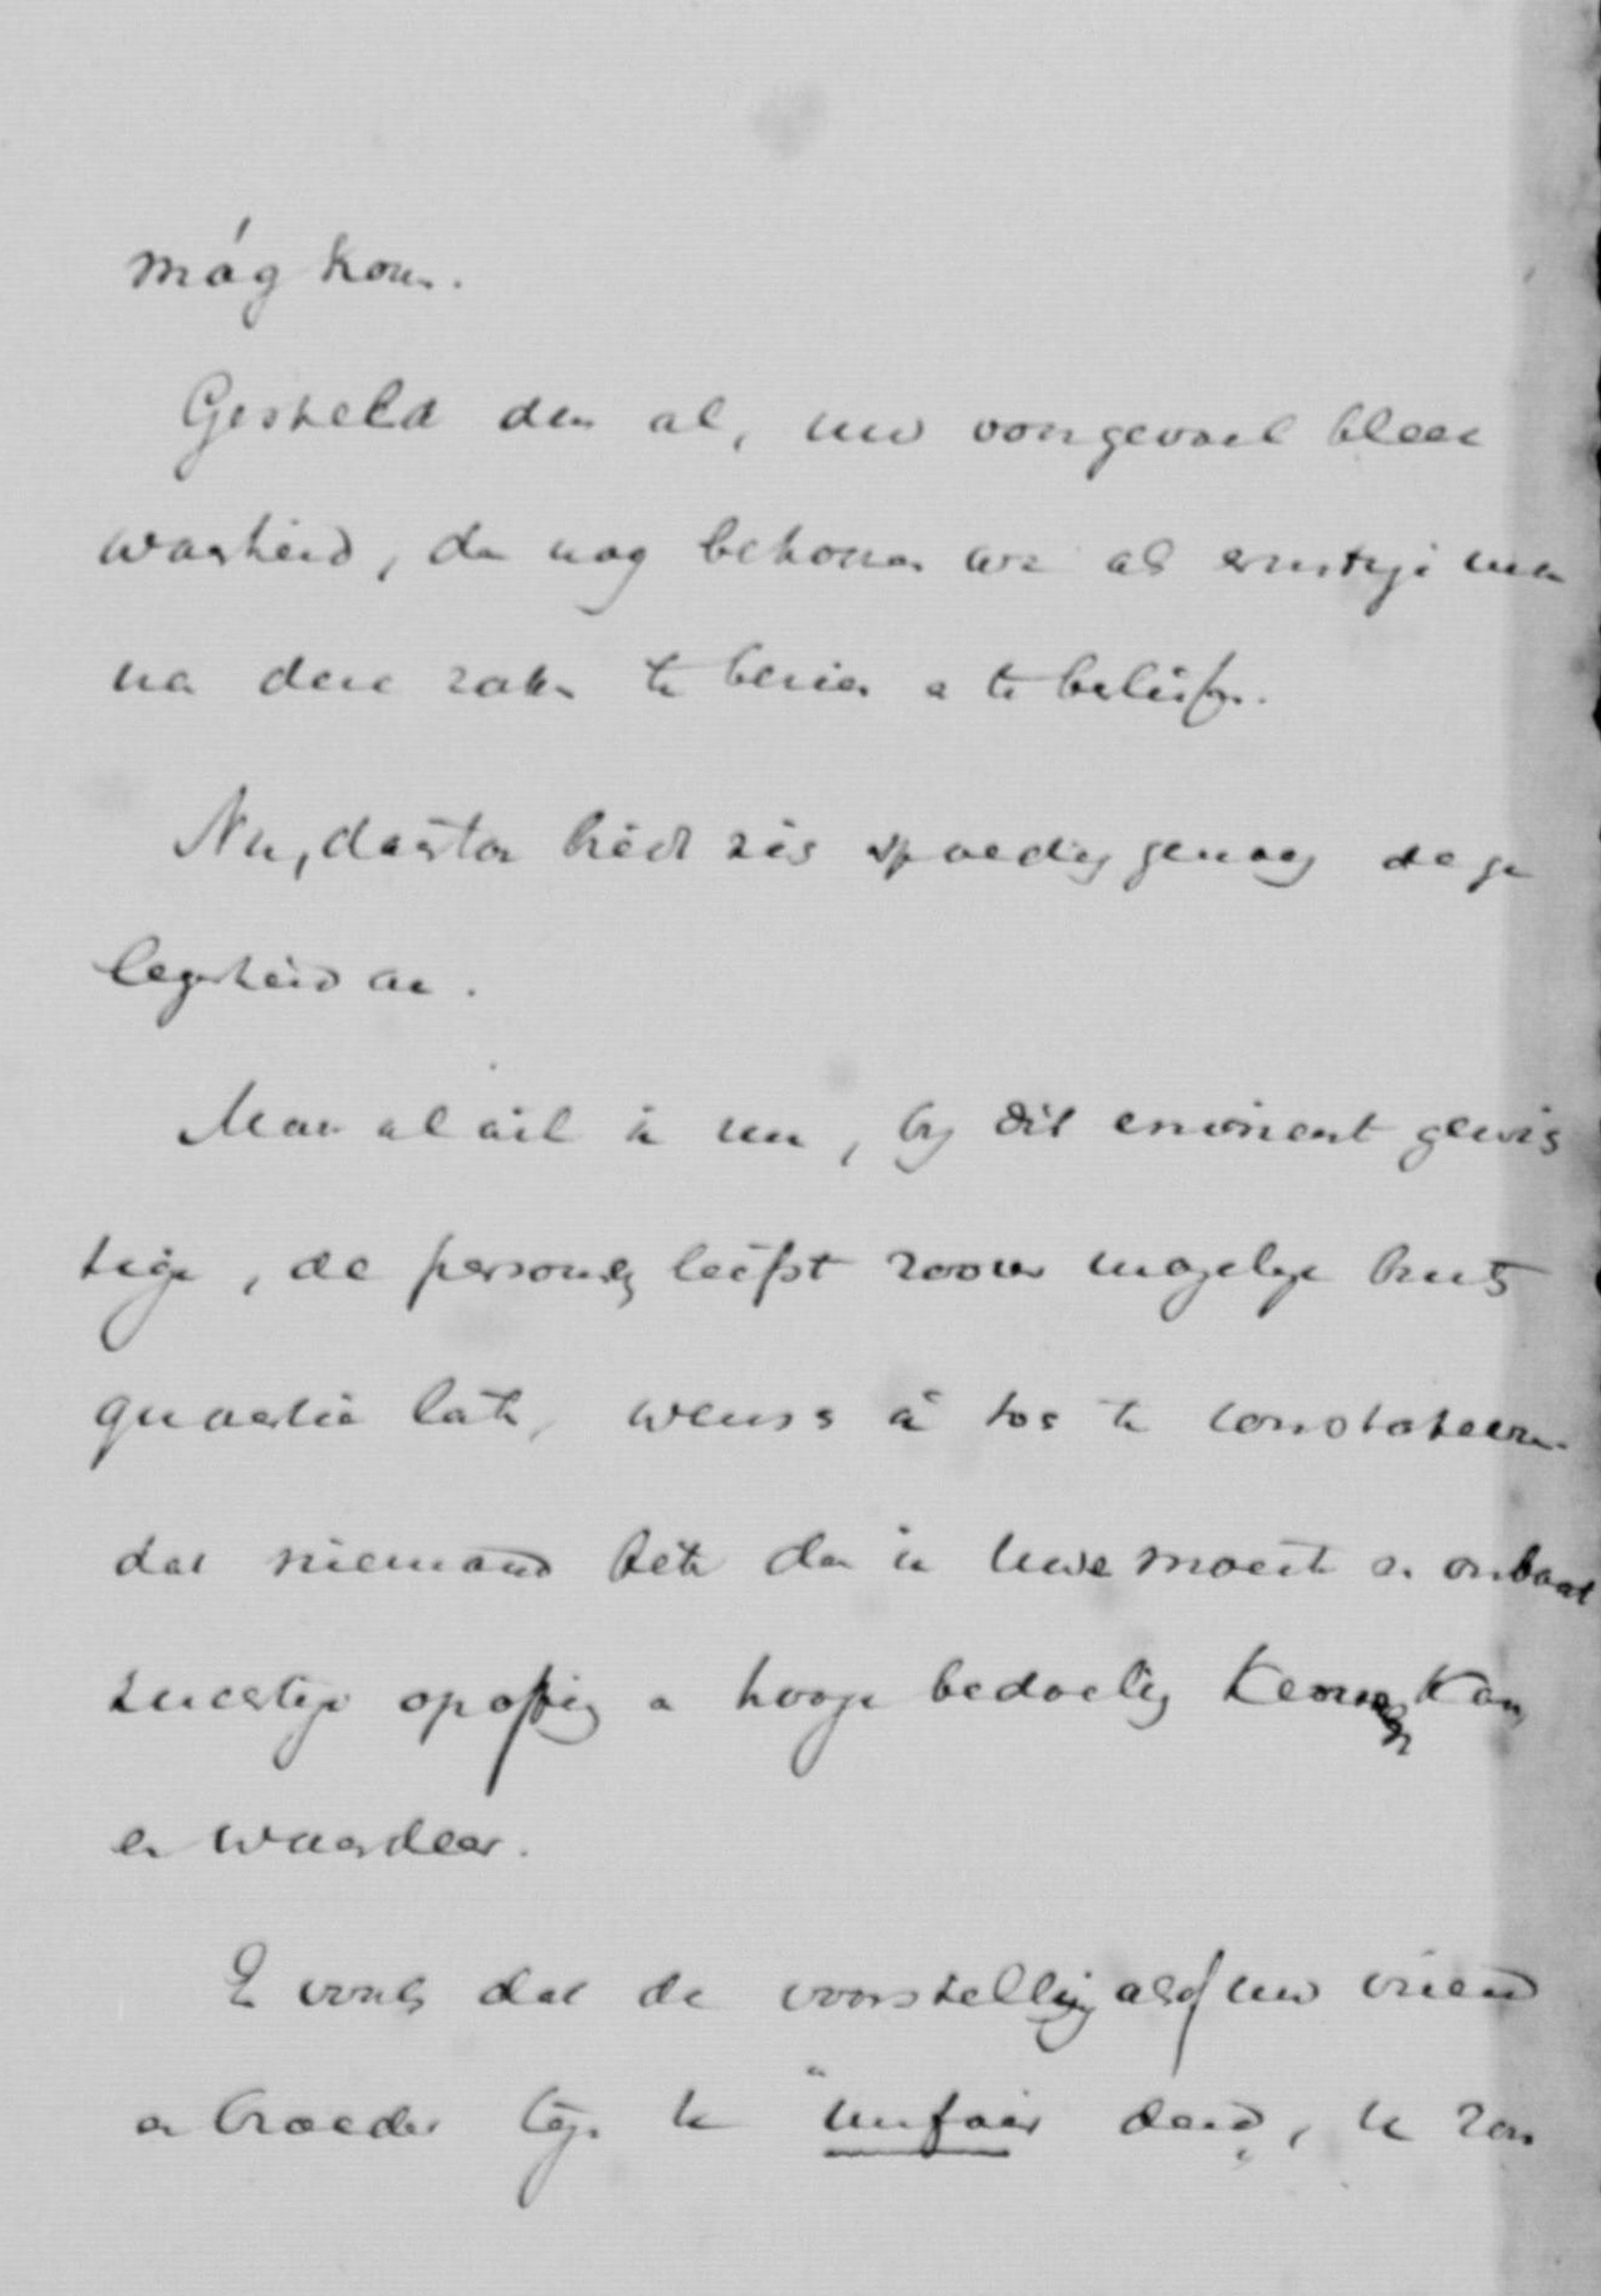 mág kom.
Gesteld dan al, uw voorgevoel bleek
waarheid, dan nog behooren we als ernstige man
na deze zaken te bezien te
Nu, daartoe biedt zich spoedig genoeg de ge
legenheid aan.
Maar al wil ik nu, bij dit eminent gewis
tige, de persoonlij liefst zoover mogelijk buit
quaestie laten, wensch ik toe te constateeren
dat niemand beter dan ik Uwe moeite en onbaat
zuchtige opoffring en hooge bedoeling kennen kan,
en waardeer.
E vooral dat de voorstelling alsof uw vriend
en broeder tegen U "unfair deed, U zou